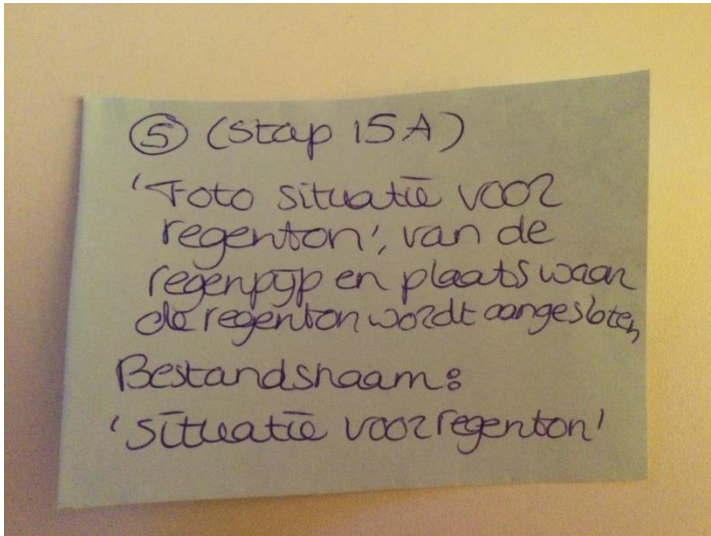 ⑤ (stap 15A)
'Foto situatie voor
regenton', van de
regenpijp en plaats waar
de regenton wordt aangesloten,
Bestandsnaam:
'Situatie voor regenton'